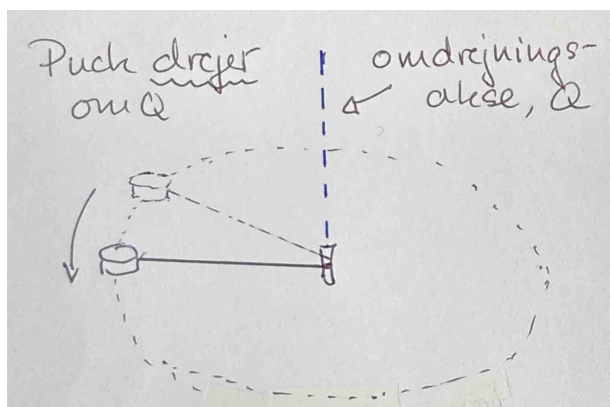 Puck drejer
om Q
omdrejnings-
akse, Q